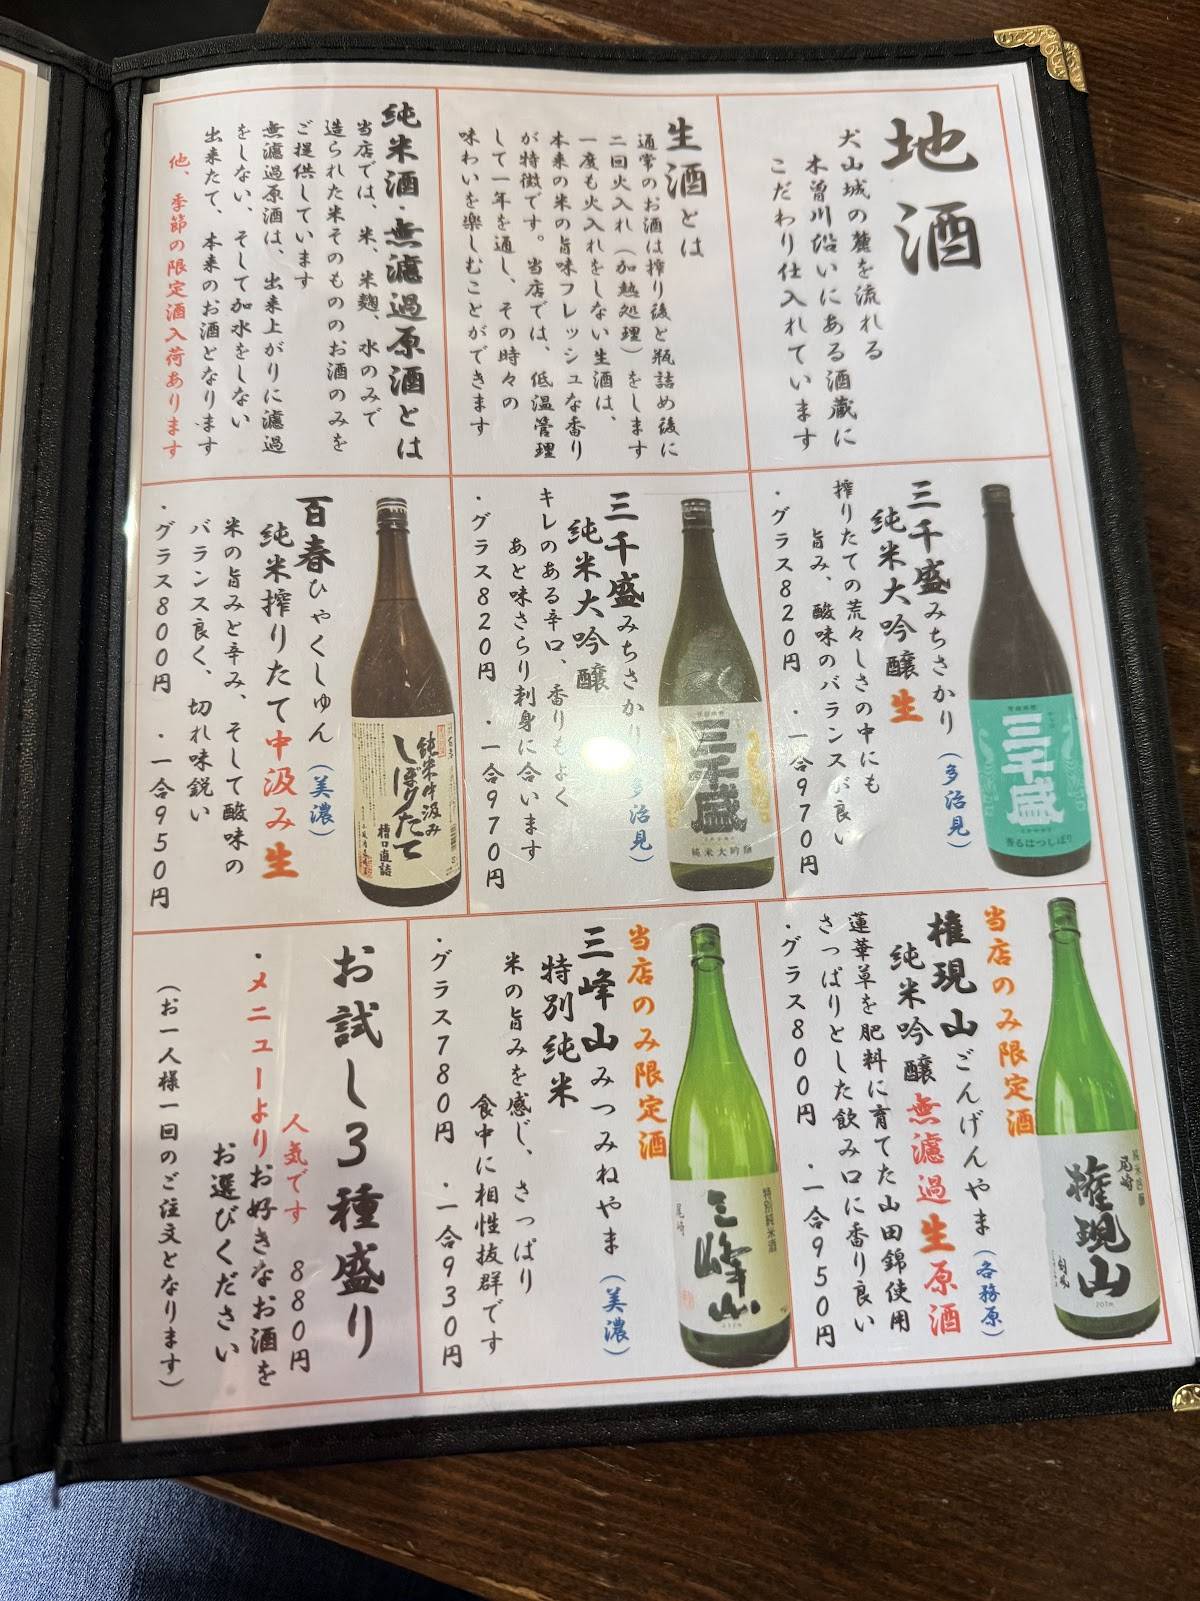 地酒
犬山城の麓を流れる
木曽川沿いにある酒蔵に
こだわり仕入れています
生酒とは
通常のお酒は搾り後と瓶詰め後に
二回火入れ(加熱処理)をします
一度も火入れをしない生酒は、
本来の米の旨味フレッシュな香り
が特徴です。当店では、低温管理
して一年を通し、その時々の
味わいを楽しむことができます
純米酒・無濾過原酒とは
当店では、米、米麹、水のみで
造られた米そのもののお酒のみを
ご提供しています
無濾過原酒は、出来上がりに濾過
をしない、そして加水をしない
出来たて、本来のお酒となります
他、季節の限定酒入荷あります
三千盛みちさかり(多治見)
純米大吟醸生
搾りたての荒々しさの中にも
旨み、酸味のバランスが良い
・グラス820円 ・一合970円
三千盛
香るはつしぼり
三千盛みちさかり(多治見)
純米大吟醸
キレのある辛口、香りもよく
あと味さらり刺身に合います
・グラス820円 ・一合970円
三千盛
純米大吟醸
百春ひゃくしゅん(美濃)
純米搾りたて中汲み生
米の旨みと辛み、そして酸味の
バランス良く、切れ味鋭い
・グラス800円 ・一合950円
純米中汲み
しぼりたて
槽口直詰
当店のみ限定酒
権現山ごんげんやま(各務原)
純米吟醸無濾過生原酒
蓮華草を肥料に育てた山田錦使用
さっぱりとした飲み口に香り良い
・グラス800円 ・一合950円
純米吟醸
尾崎
権現山
当店のみ限定酒
三峰山みつみねやま(美濃)
特別純米
米の旨みを感じ、さっぱり
食中に相性抜群です
・グラス780円 ・一合930円
特別純米酒
三峰山
尾崎
お試し3種盛り
人気です 880円
・メニューよりお好きなお酒を
お選びください
(お一人様一回のご注文となります)